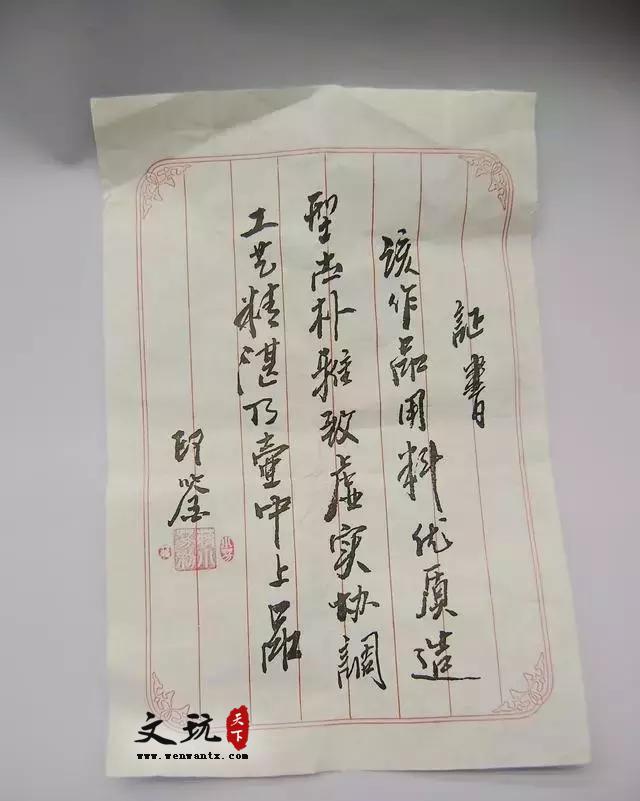 証書
该作品用料优质造
型古朴雅致虚实协調
工艺精湛乃壶中上品
印鉴
文玩天下
www.wenwantx.com